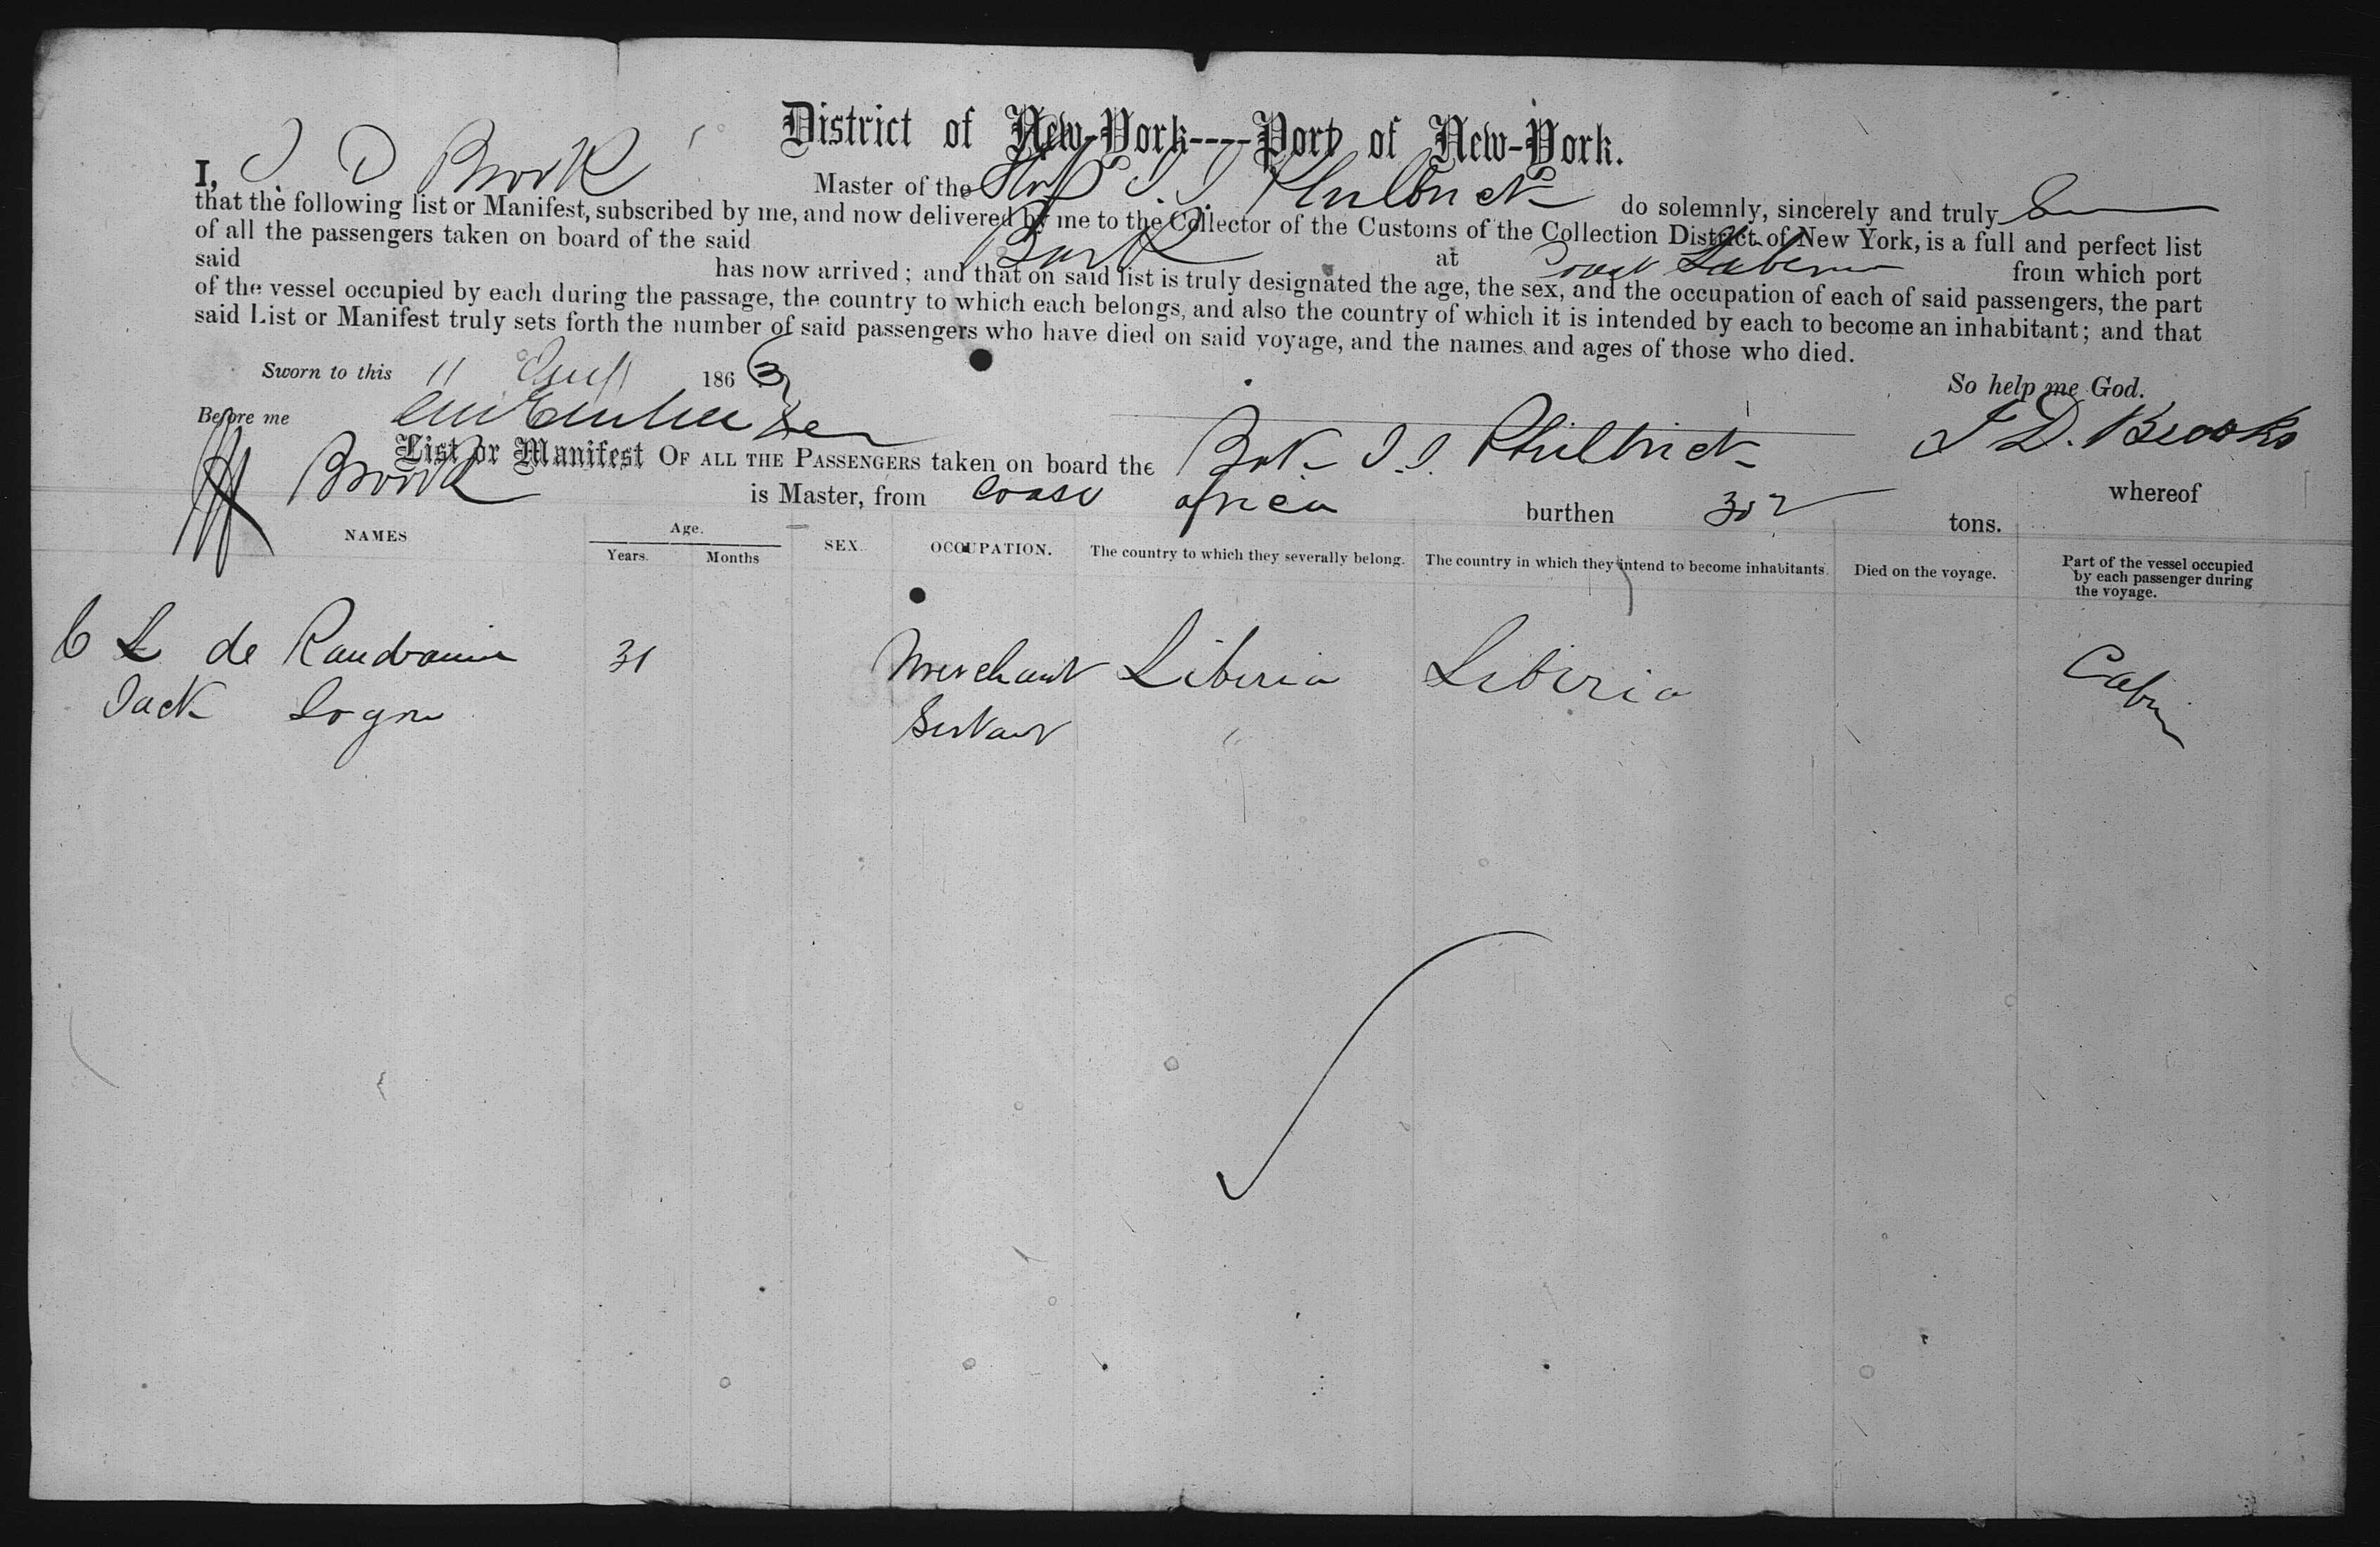 District of New-York----Port of New-York.
I, J D Brook Master of the Bark J. J. Philbrick do solemnly, sincerely and truly
that the following list or Manifest, subscribed by me, and now delivered by me to the Collector of the Customs of the Collection District of New York, is a full and perfect list
of all the passengers taken on board of the said Bark at Coast Liberia from which port
said has now arrived; and that on said list is truly designated the age, the sex, and the occupation of each of said passengers, the part
of the vessel occupied by each during the passage, the country to which each belongs, and also the country of which it is intended by each to become an inhabitant; and that
said List or Manifest truly sets forth the number of said passengers who have died on said voyage, and the names and ages of those who died.
Sworn to this 11 1863 So help me God.
Before me J D. Brooks
List or Manifest OF ALL THE PASSENGERS taken on board the Bark J. J. Philbrick whereof
Brook is Master, from Coast Africa burthen 302 tons.
NAMES Age. Years. Months SEX. OCCUPATION. The country to which they severally belong. The country in which they intend to become inhabitants. Died on the voyage. Part of the vessel occupied by each passenger during the voyage.
C L de 31 Merchant Liberia Liberia Cabin
Jack Servant "